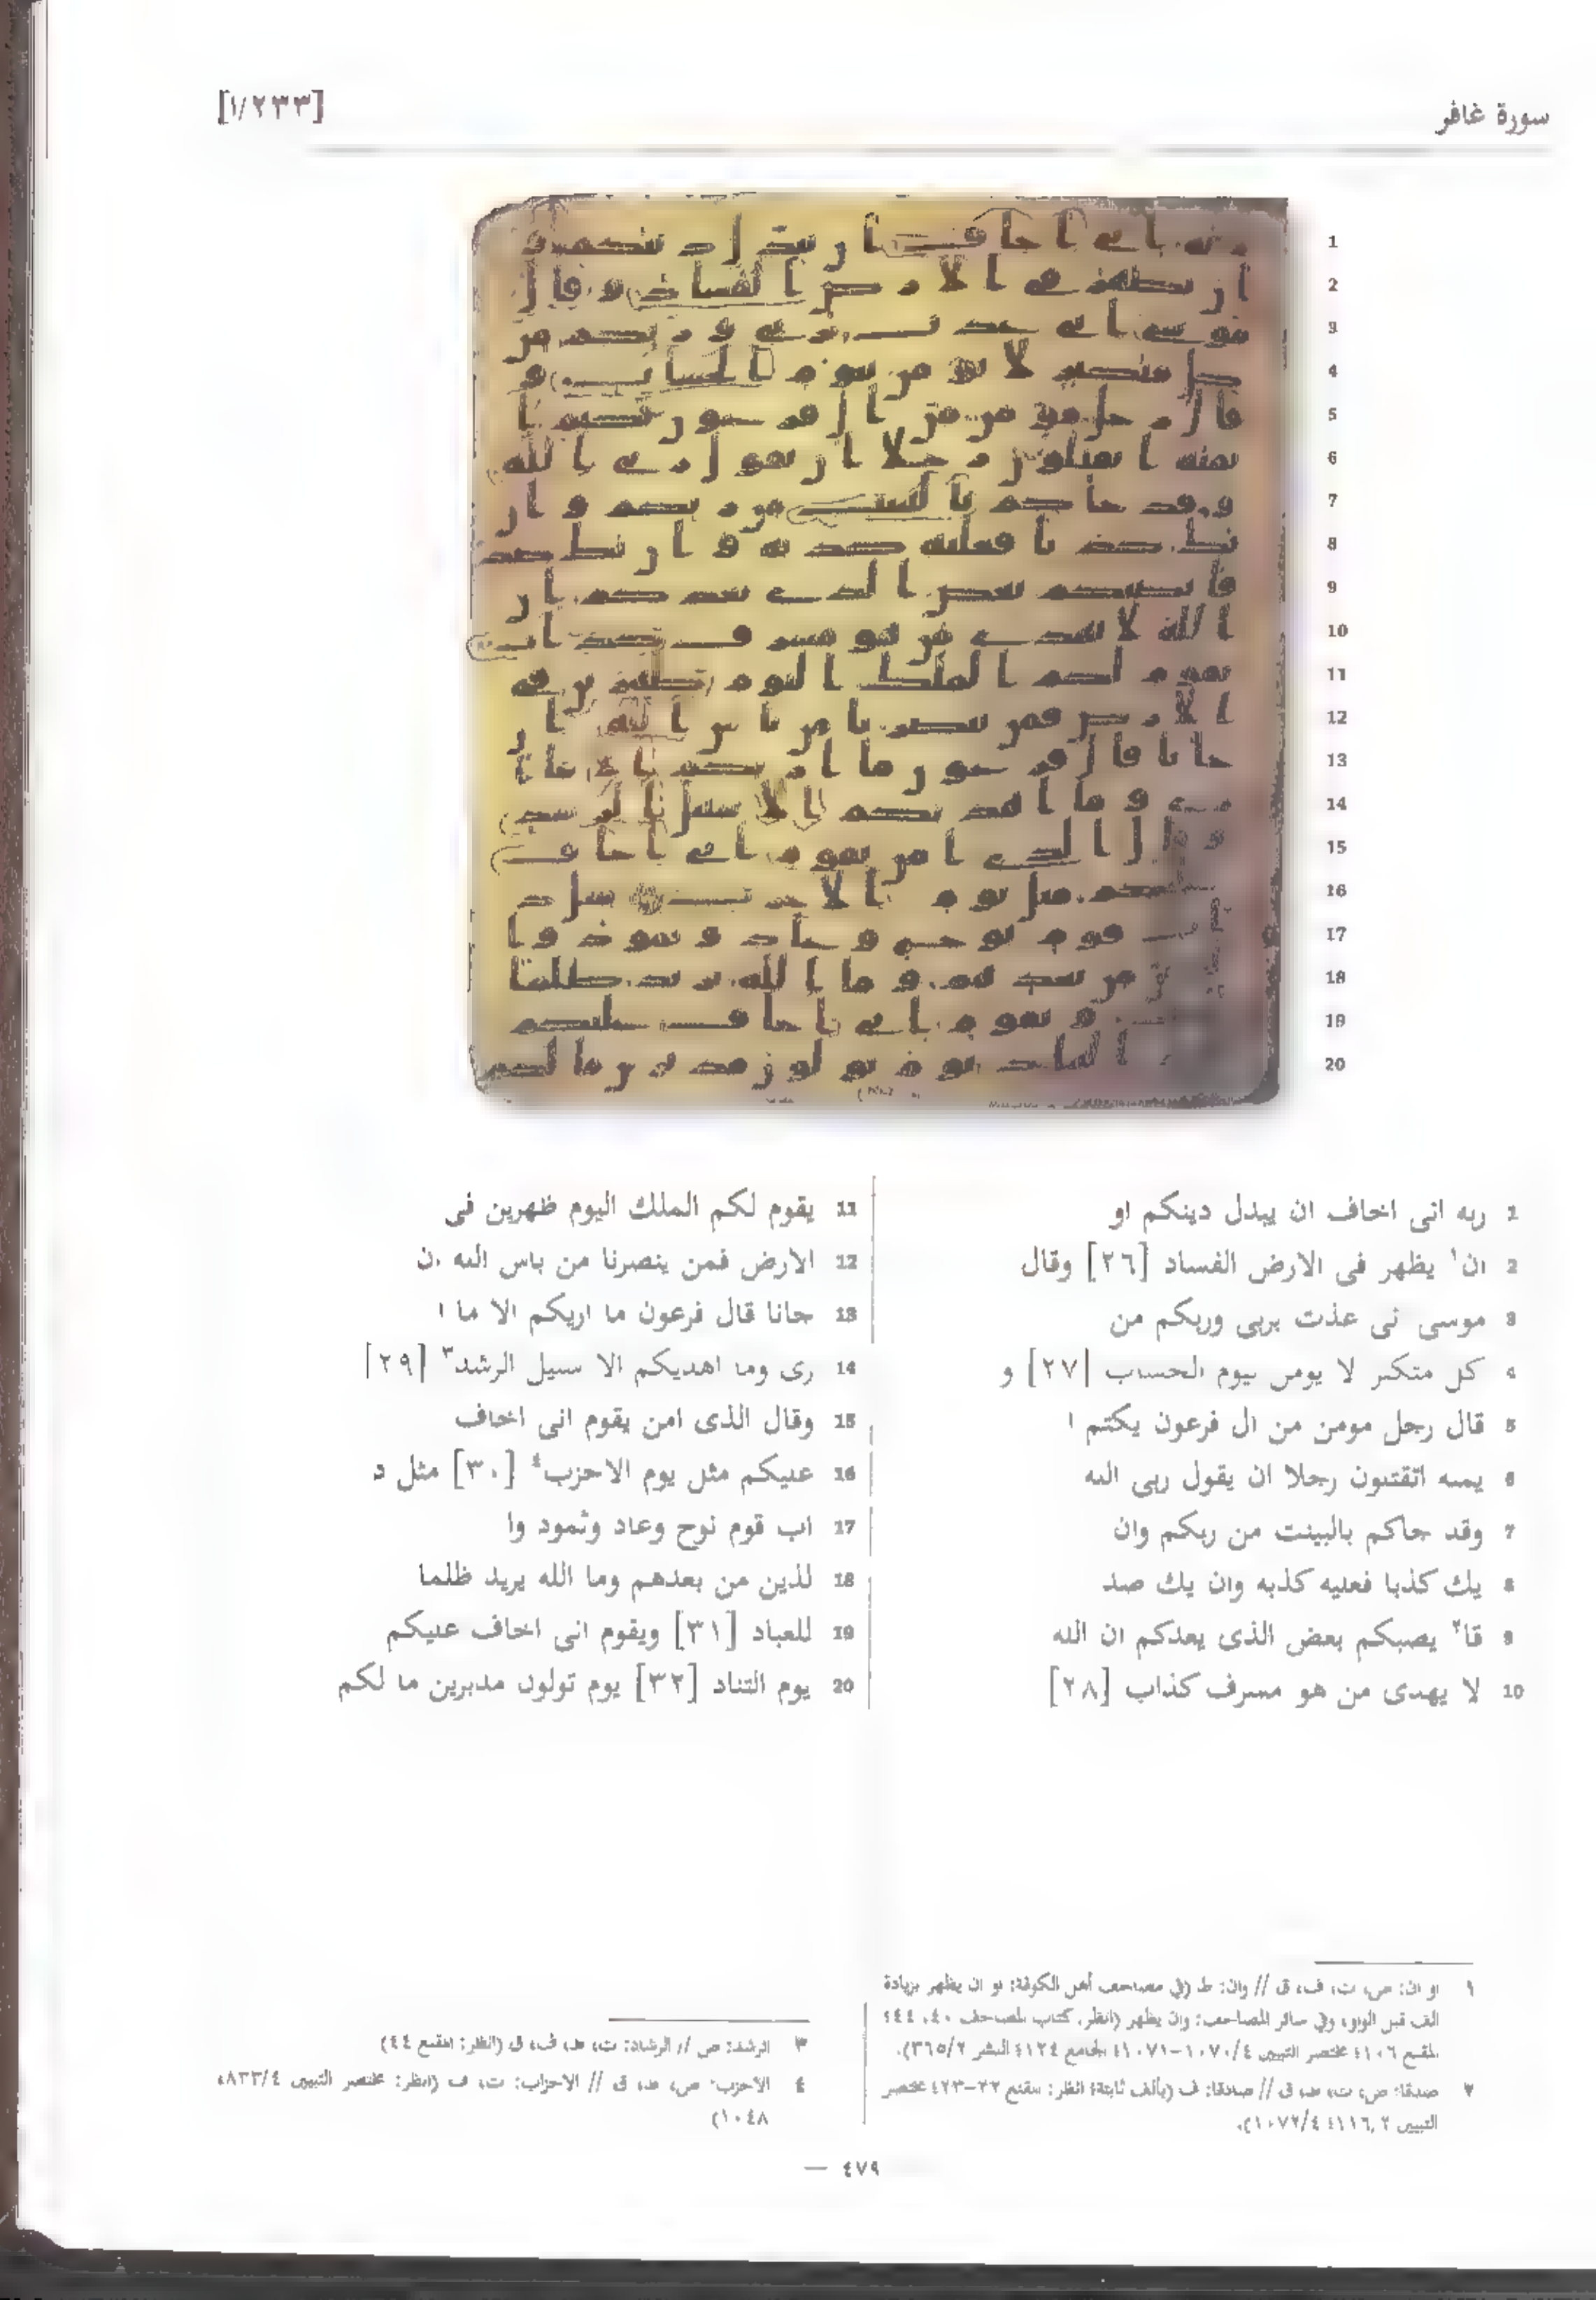 سورة غافر
[١/٢٣٣]
1 ربه انى اخاف ان يبدل دينكم او
2 ان١ يظهر فى الارض الفساد [٢٦] وقال
3 موسى نى عذت بربى وربكم من
4 كل متكبر لا يومن بيوم الحساب [٢٧] و
5 قال رجل مومن من ال فرعون يكتم ا
6 يمنه اتقتلون رجلا ان يقول ربى الله
7 وقد جاكم بالبينت من ربكم وان
8 يك كذبا فعليه كذبه وان يك صد
9 قا٢ يصبكم بعض الذى يعدكم ان الله
10 لا يهدى من هو مسرف كذاب [٢٨]
11 يقوم لكم الملك اليوم ظهرين فى
12 الارض فمن ينصرنا من باس الله ان
13 جانا قال فرعون ما اريكم الا ما ا
14 رى وما اهديكم الا سبيل الرشد٣ [٢٩]
15 وقال الذى امن يقوم انى اخاف
16 عليكم مثل يوم الاحزب٤ [٣٠] مثل د
17 اب قوم نوح وعاد وثمود وا
18 لذين من بعدهم وما الله يريد ظلما
19 للعباد [٣١] ويقوم انى اخاف عليكم
20 يوم التناد [٣٢] يوم تولون مدبرين ما لكم
١ او ان: ص، ت، ف، ق // وان: ط (في مصاحف أهل الكوفة: او ان يظهر بزيادة
الف قبل الواو، وفي سائر المصاحف: وان يظهر (انظر: كتاب المصاحف ٤٠، ٤٤؛
المقنع ١٠٦؛ مختصر التبيين ١٠٧٠/٤-١٠٧١؛ الجامع ١٢٤؛ النشر ٣٦٥/٢).
٢ صدقا: ص، ت، ط، ق // صادقا: ف (بألف ثابتة؛ انظر: المقنع ٢٢-٢٣؛ مختصر
التبيين ١١٦/٢؛ ١٠٧٢/٤).
٣ الرشد: ص // الرشاد: ت، ط، ف، ق (انظر: المقنع ٤٤)
٤ الاحزب: ص، ط، ق // الاحزاب: ت، ف (انظر: مختصر التبيين ٨٣٣/٤،
١٠٤٨)
— ٤٧٩